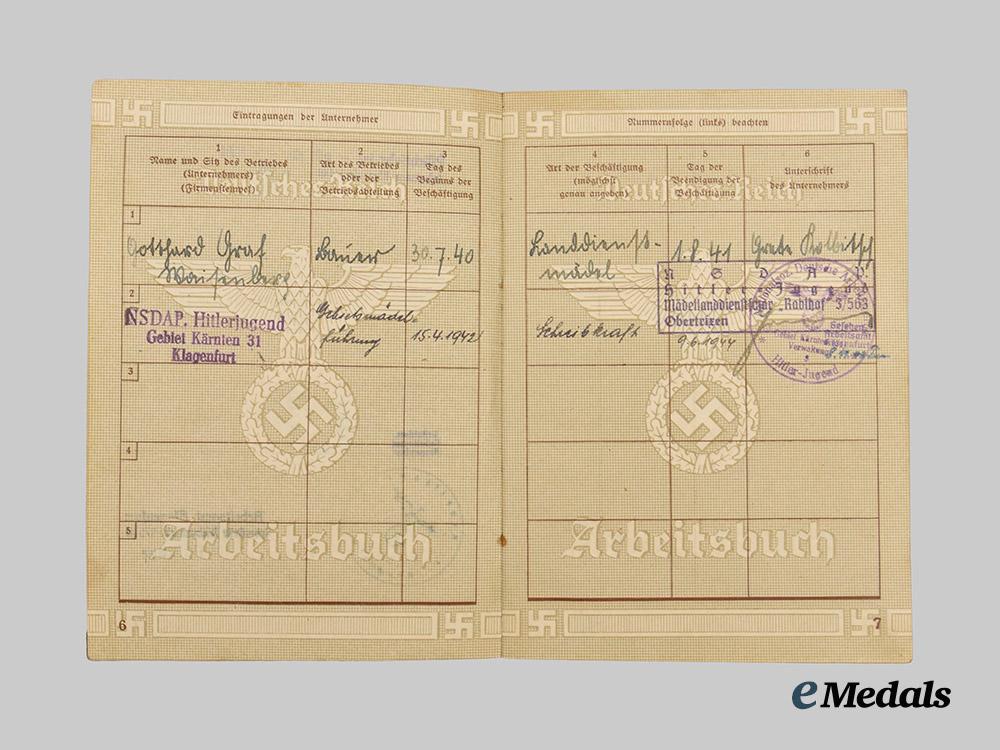 Eintragungen der Unternehmer
1
Name und Sitz des Betriebes
(Unternehmers)
(Firmenstempel)
2
Art des Betriebes
oder der
Betriebsabteilung
3
Tag des
Beginns der
Beschäftigung
Deutsches Reich
1
Gotthard Graf
Waisenberg
Bauer
30.7.40
2
NSDAP. Hitlerjugend
Gebiet Kärnten 31
Klagenfurt
Gebietsmädel-
führung
15.4.1942
3
4
5
Arbeitsbuch
6
Nummernfolge (links) beachten
4
Art der Beschäftigung
(möglichst
genau angeben)
5
Tag der
Beendigung der
Beschäftigung
6
Unterschrift
des Unternehmers
Deutsches Reich
Landdienst-
mädel
1.8.41
Grete
NSDAP.
Hitler Jugend
Mädellanddienstschar "Rablhof" 3/563
Obertrixen
Schreibkraft
9.6.1944
Gesehen
Arbeitsamt
Hitler-Jugend
Arbeitsbuch
7
eMedals